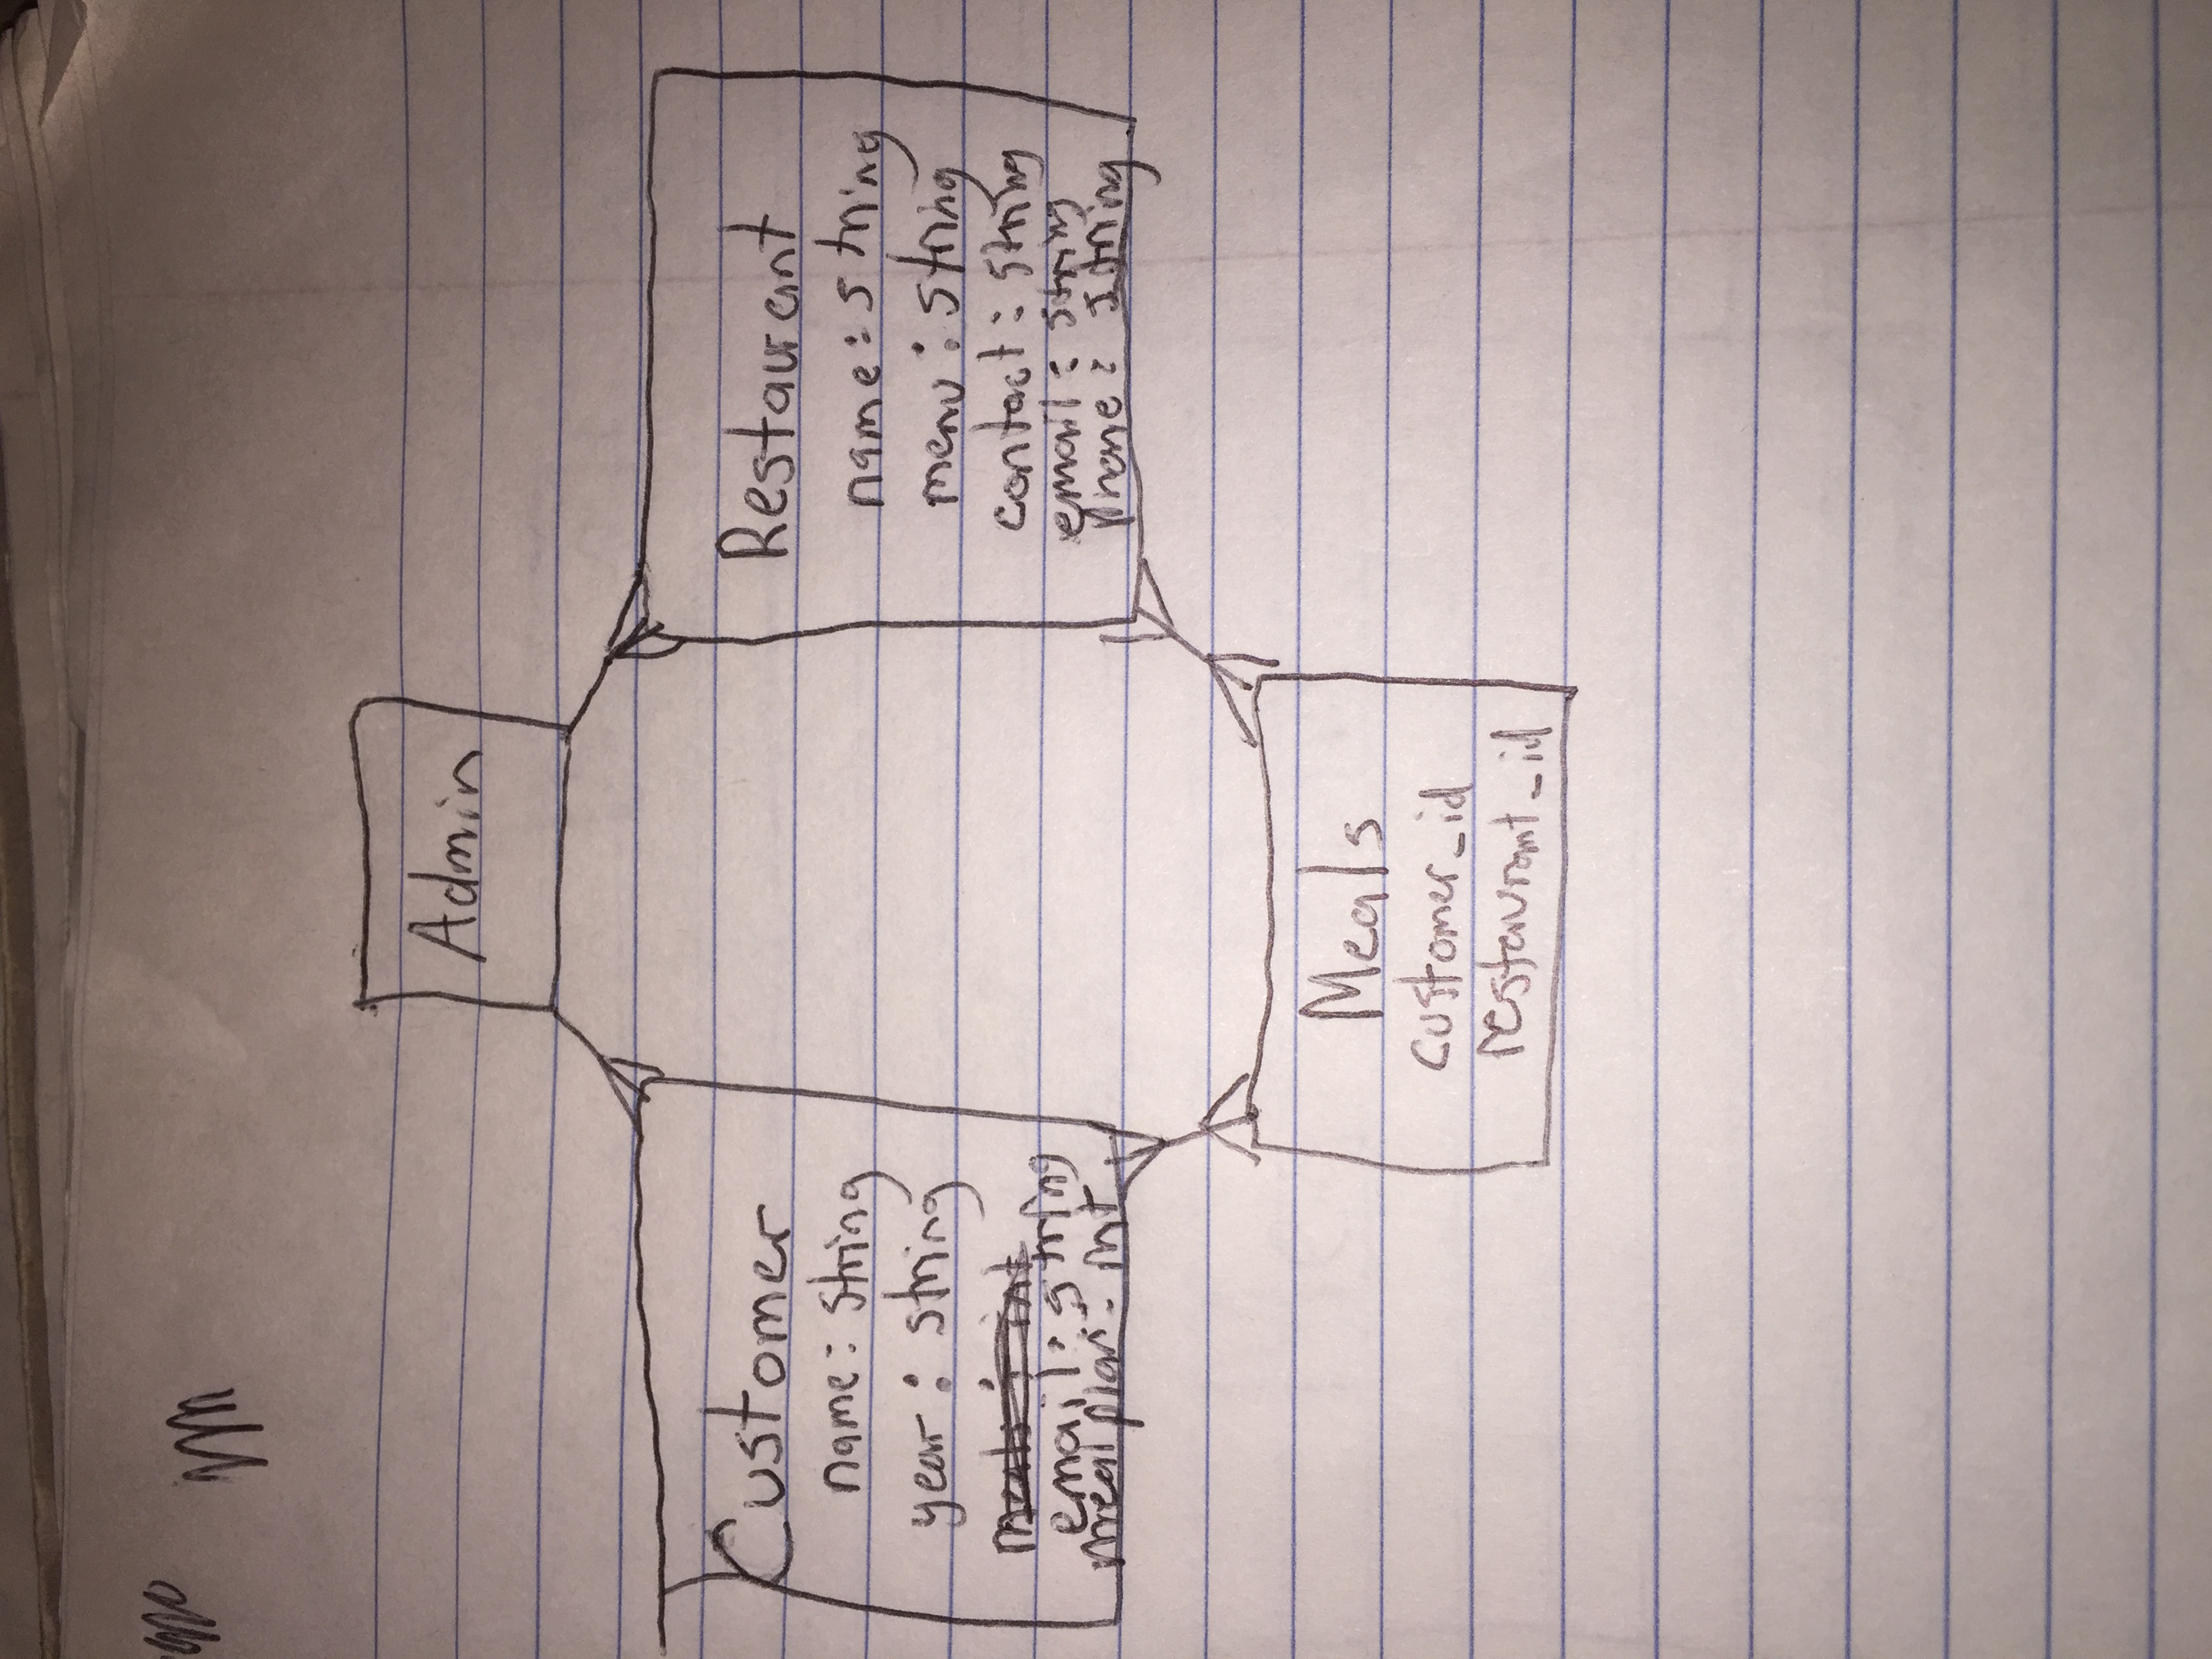 Admin
Customer
name: string
year: string
meals: int
email: string
meal plan: int
Restaurant
name: string
menu: string
contact: string
email: string
phone: string
Meals
customer_id
restaurant_id